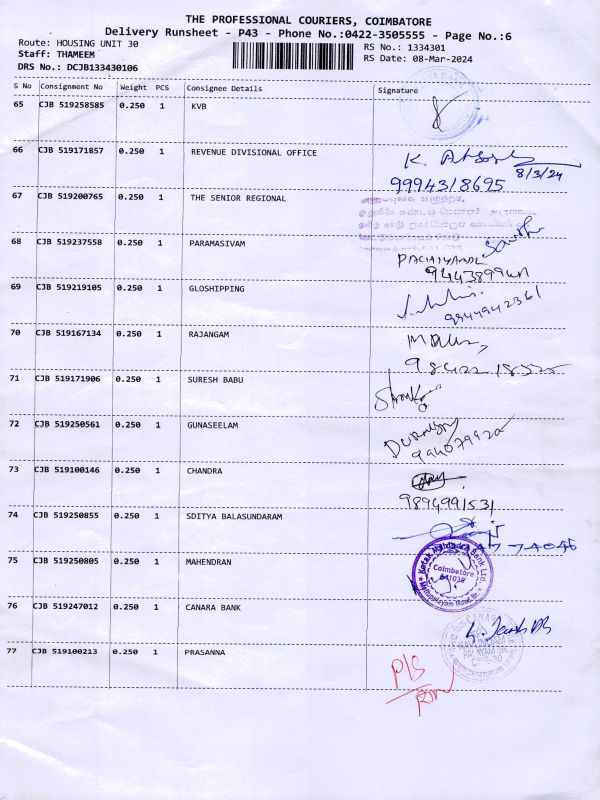 THE PROFESSIONAL COURIERS, COIMBATORE
Delivery Runsheet - P43 - Phone No.:0422-3505555 - Page No.:6
Route: HOUSING UNIT 30 RS No.: 1334301
Staff: THAMEEM RS Date: 08-Mar-2024
DRS No.: DCJB133430106
S No Consignment No Weight PCS Consignee Details Signature
65 CJB 519258585 0.250 1 KVB
66 CJB 519171857 0.250 1 REVENUE DIVISIONAL OFFICE
K. 8/3/24
9994318695
67 CJB 519200765 0.250 1 THE SENIOR REGIONAL
68 CJB 519237558 0.250 1 PARAMASIVAM
69 CJB 519219105 0.250 1 GLOSHIPPING
9944942361
70 CJB 519167134 0.250 1 RAJANGAM
71 CJB 519171906 0.250 1 SURESH BABU
72 CJB 519250561 0.250 1 GUNASEELAM
73 CJB 519100146 0.250 1 CHANDRA
9894991531
74 CJB 519250855 0.250 1 SDITYA BALASUNDARAM
75 CJB 519250805 0.250 1 MAHENDRAN
Kotak Mahindra Bank Ltd.
Coimbatore
641030
Mettupalayam Road Br.
76 CJB 519247012 0.250 1 CANARA BANK
77 CJB 519100213 0.250 1 PRASANNA
P/S